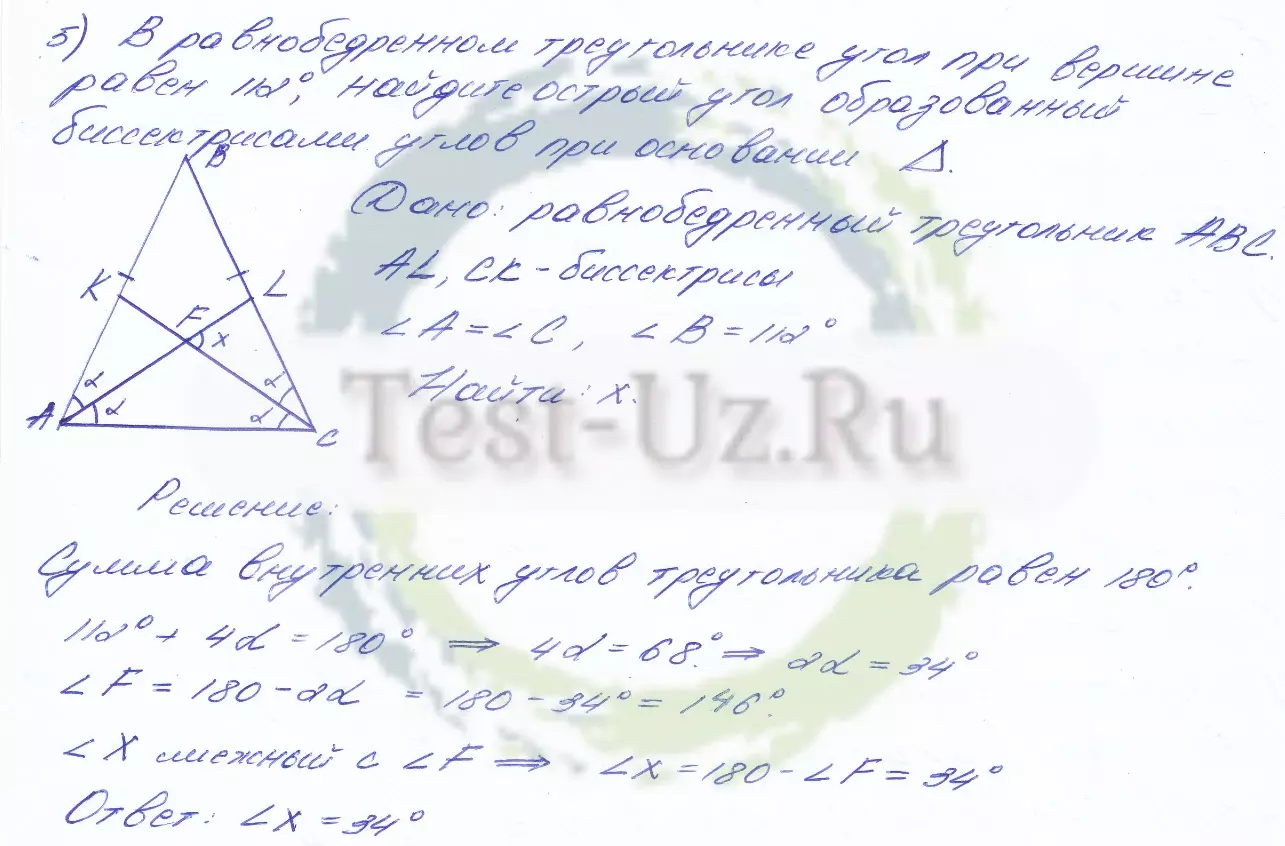 5) В равнобедренном треугольнике угол при вершине
равен 112°, найдите острый угол образованный
биссектрисами углов при основании Δ.
B
Дано: равнобедренный треугольник ABC.
AL, CK - биссектрисы
K L
F
x
∠A = ∠C, ∠B = 112°
Найти: x.
α α
A α α C
Test-Uz.Ru
Решение:
Сумма внутренних углов треугольника равен 180°.
112° + 4α = 180° ⇒ 4α = 68.° ⇒ 2α = 34°
∠F = 180 - 2α = 180 - 34° = 146°.
∠X смежный с ∠F ⇒ ∠X = 180 - ∠F = 34°
Ответ: ∠X = 34°